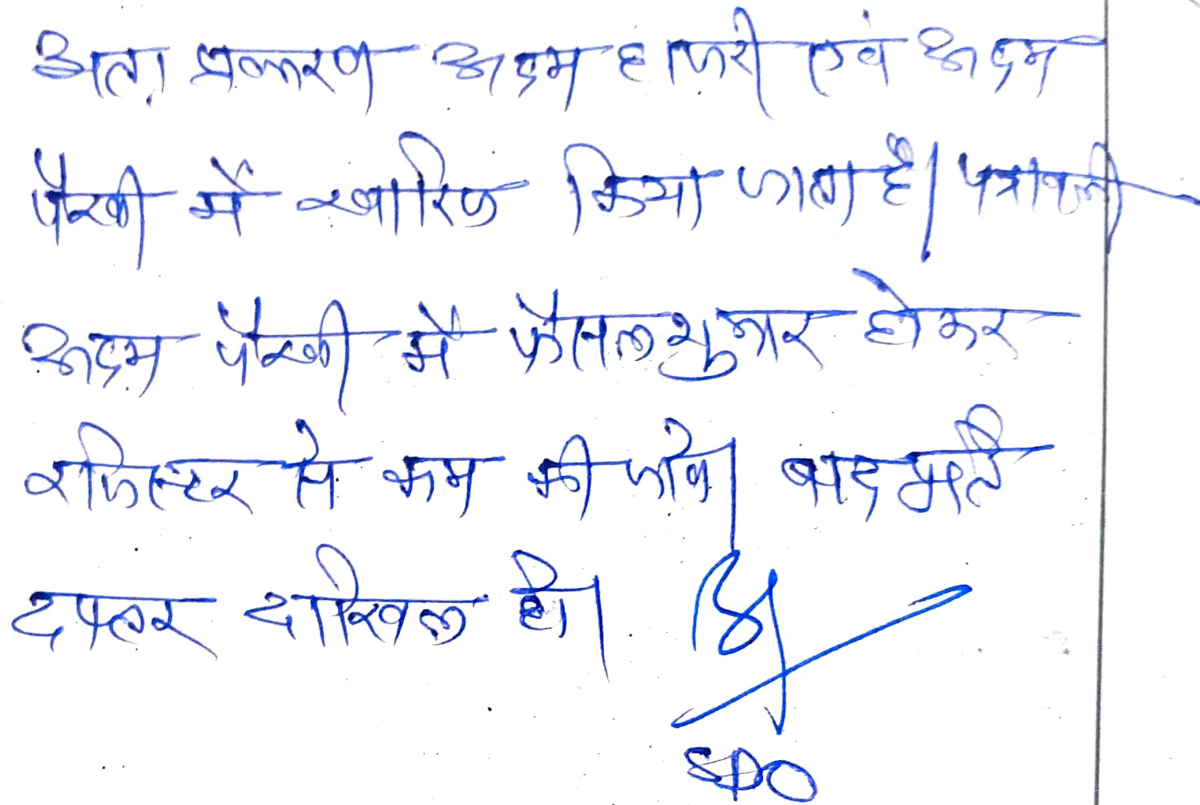 अतः प्रकरण अदम हाजरी एवं अदम
पैरवी में खारिज किया जाता है। पत्रावली
अदम पैरवी में फैसलशुमार होकर
रजिस्टर से कम की जावे। बाद मर्तत
दफ्तर दाखिल हो।
SDO